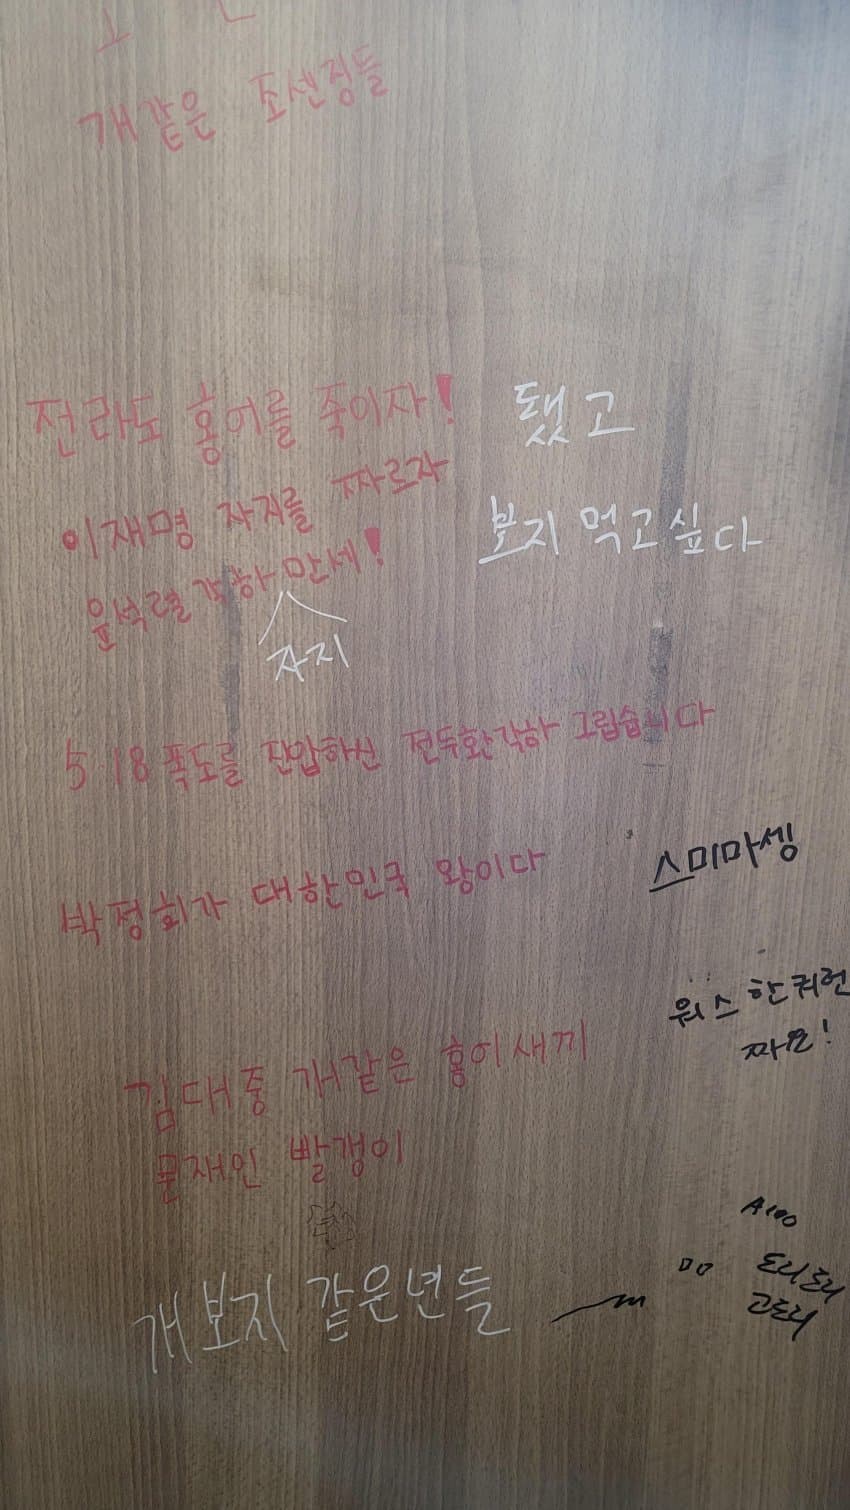 개같은 조센징들
전라도 홍어를 죽이자!
됐고
이재명 자지를 짜르자
보지 먹고싶다
윤석렬 각하 만세!
자지
5·18 폭도를 진압하신 전두환각하 그립습니다
박정희가 대한민국 왕이다
스미마셍
워스 한궈런
짜요!
김대중 개같은 홍어새끼
문재인 빨갱이
개보지 같은년들
도리도리
고도리